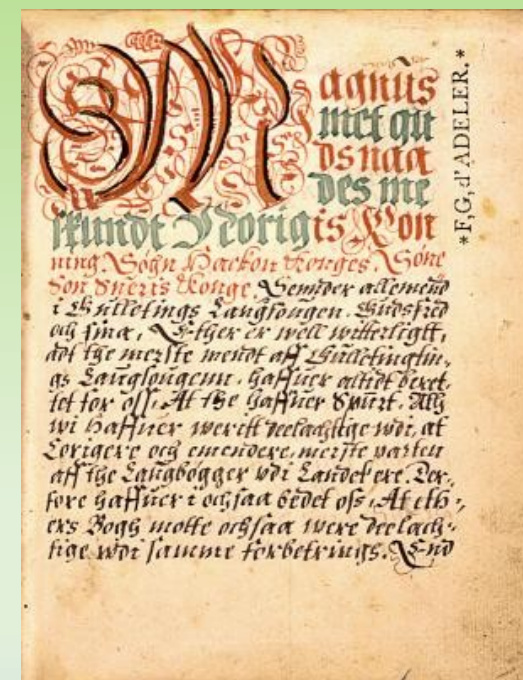 Magnus
met gu
ds naa
des me
skundt Norigis Kon
ning. Søgn Hackon Konges. Søne
Søn Sueris Konge, Sennder allemend
i Gulletings Laugsougen. Gudsfred
och sina, Ether er well witterligtt,
adt the merste mendt aff Gulletingtin,
gs Laugsougenn, haffuer altidt beret,
tet for oss. At the haffuer Spurt. Att
wi haffuer weritt deelachtige wdi, at
Corigere och emendere, merste parten
aff the Laugbogger wdi Landet ere. Der,
fore haffuer i ochsaa bedet oss, At eth,
ers Bogh motte ochsaa were deelach,
tige wdi samme forbetrings. End
*F,G, d'ADELER.*